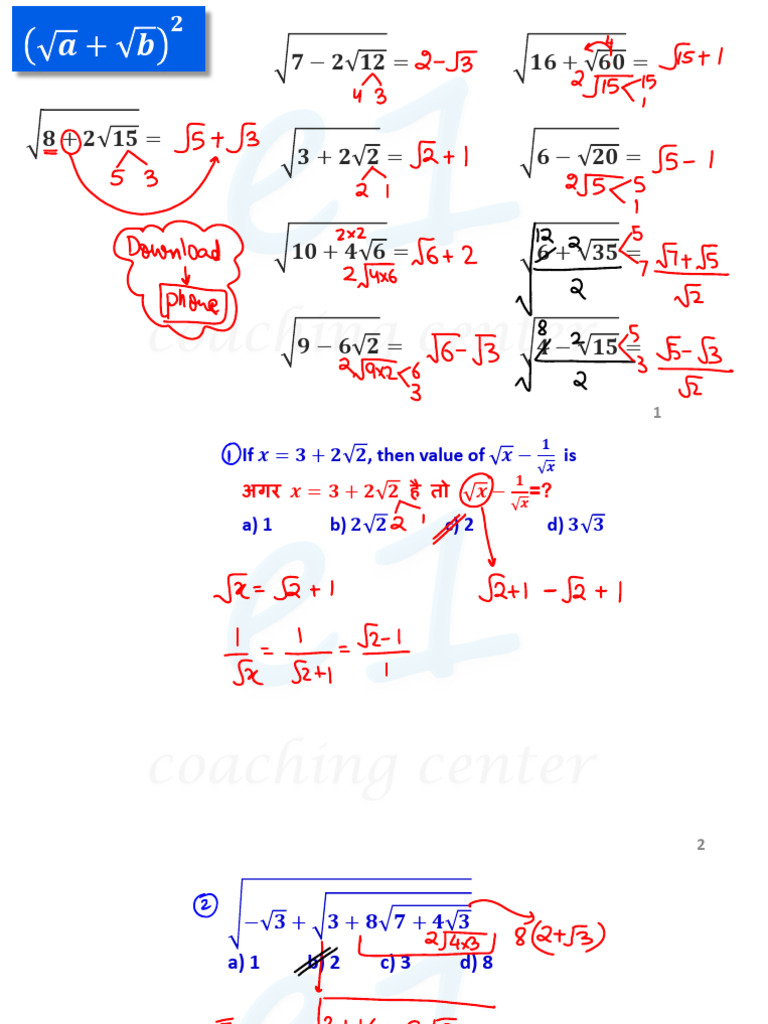 (√a + √b)²
√(7 − 2√12) = 2−√3
4 3
√(16 + √60) = √15 + 1
4
2√15 < 15
1
√(8 + 2√15) = √5 + √3
5 3
√(3 + 2√2) = √2 + 1
2 1
√(6 − √20) = √5 − 1
2√5 < 5
1
Download
phone
2×2
√(10 + 4√6) = √6 + 2
2√4×6
12 2 5
√(6 + √35) = (√7 + √5)/√2
7
2
√(9 − 6√2) = √6 − √3
2√9×2 < 6
3
8 2 5
√(4 − √15) = (√5 − √3)/√2
3
2
e1
coaching center
1
① If x = 3 + 2√2, then value of √x − 1/√x is
अगर x = 3 + 2√2 है तो √x − 1/√x =?
2 1
a) 1 b) 2√2 c) 2 d) 3√3
√x = √2 + 1
√2+1 −√2 + 1
1/√x = 1/(√2+1) = (√2−1)/1
e1
coaching center
2
② √(−√3 + √(3 + 8√(7 + 4√3)))
2√4×3
8(2+√3)
a) 1 b) 2 c) 3 d) 8